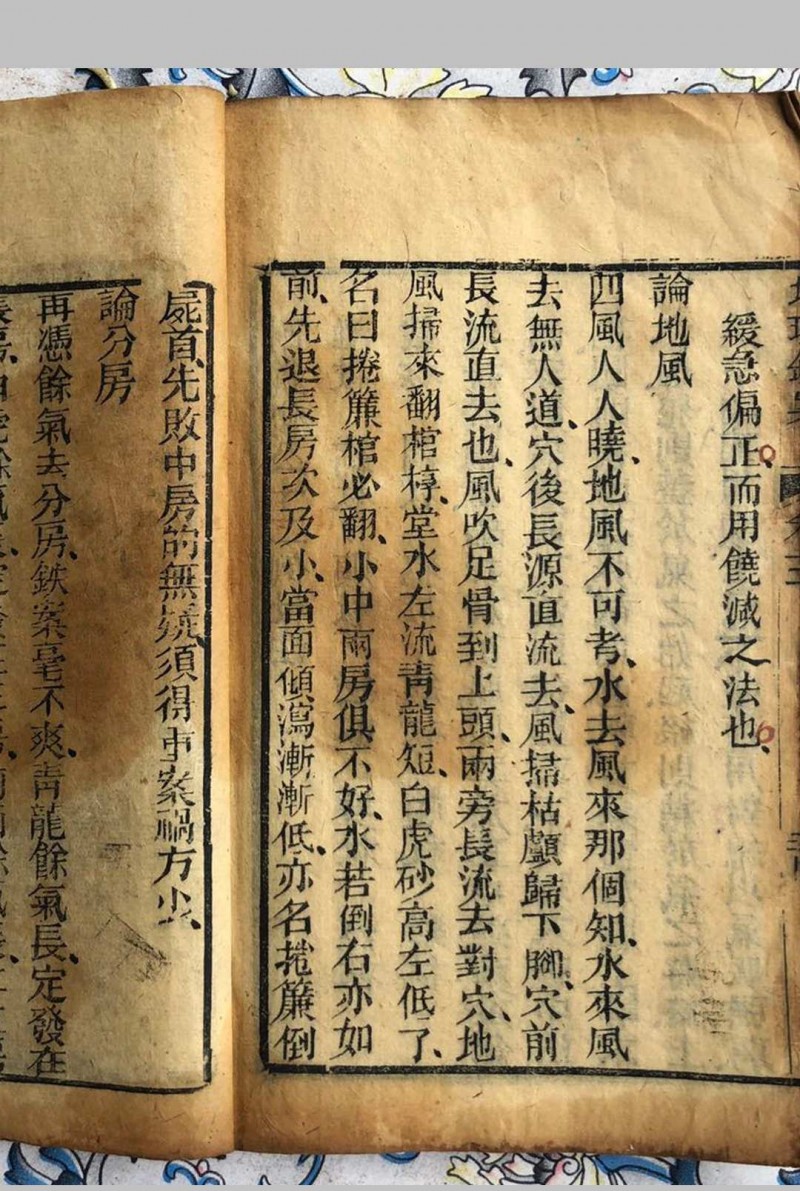 緩急偏正、而用饒減之法也、
論地風
四風人人曉、地風不可考、水去風來那個知、水來風
去無人道、穴後長源直流去、風掃枯顱歸下腳、穴前
長流直去也、風吹足骨到上頭、兩旁長流去對穴、地
風掃來翻棺椁、堂水左流青龍短、白虎砂高左低了、
名曰捲簾棺必翻、小中兩房俱不好、水若倒右亦如
前、先退長房次及小、當面傾瀉漸漸低、亦名捲簾倒
屍首、先敗中房的無疑、須得中案禍方少、
論分房
再憑餘氣去分房、鉄案毫不爽、青龍餘氣長、定發在